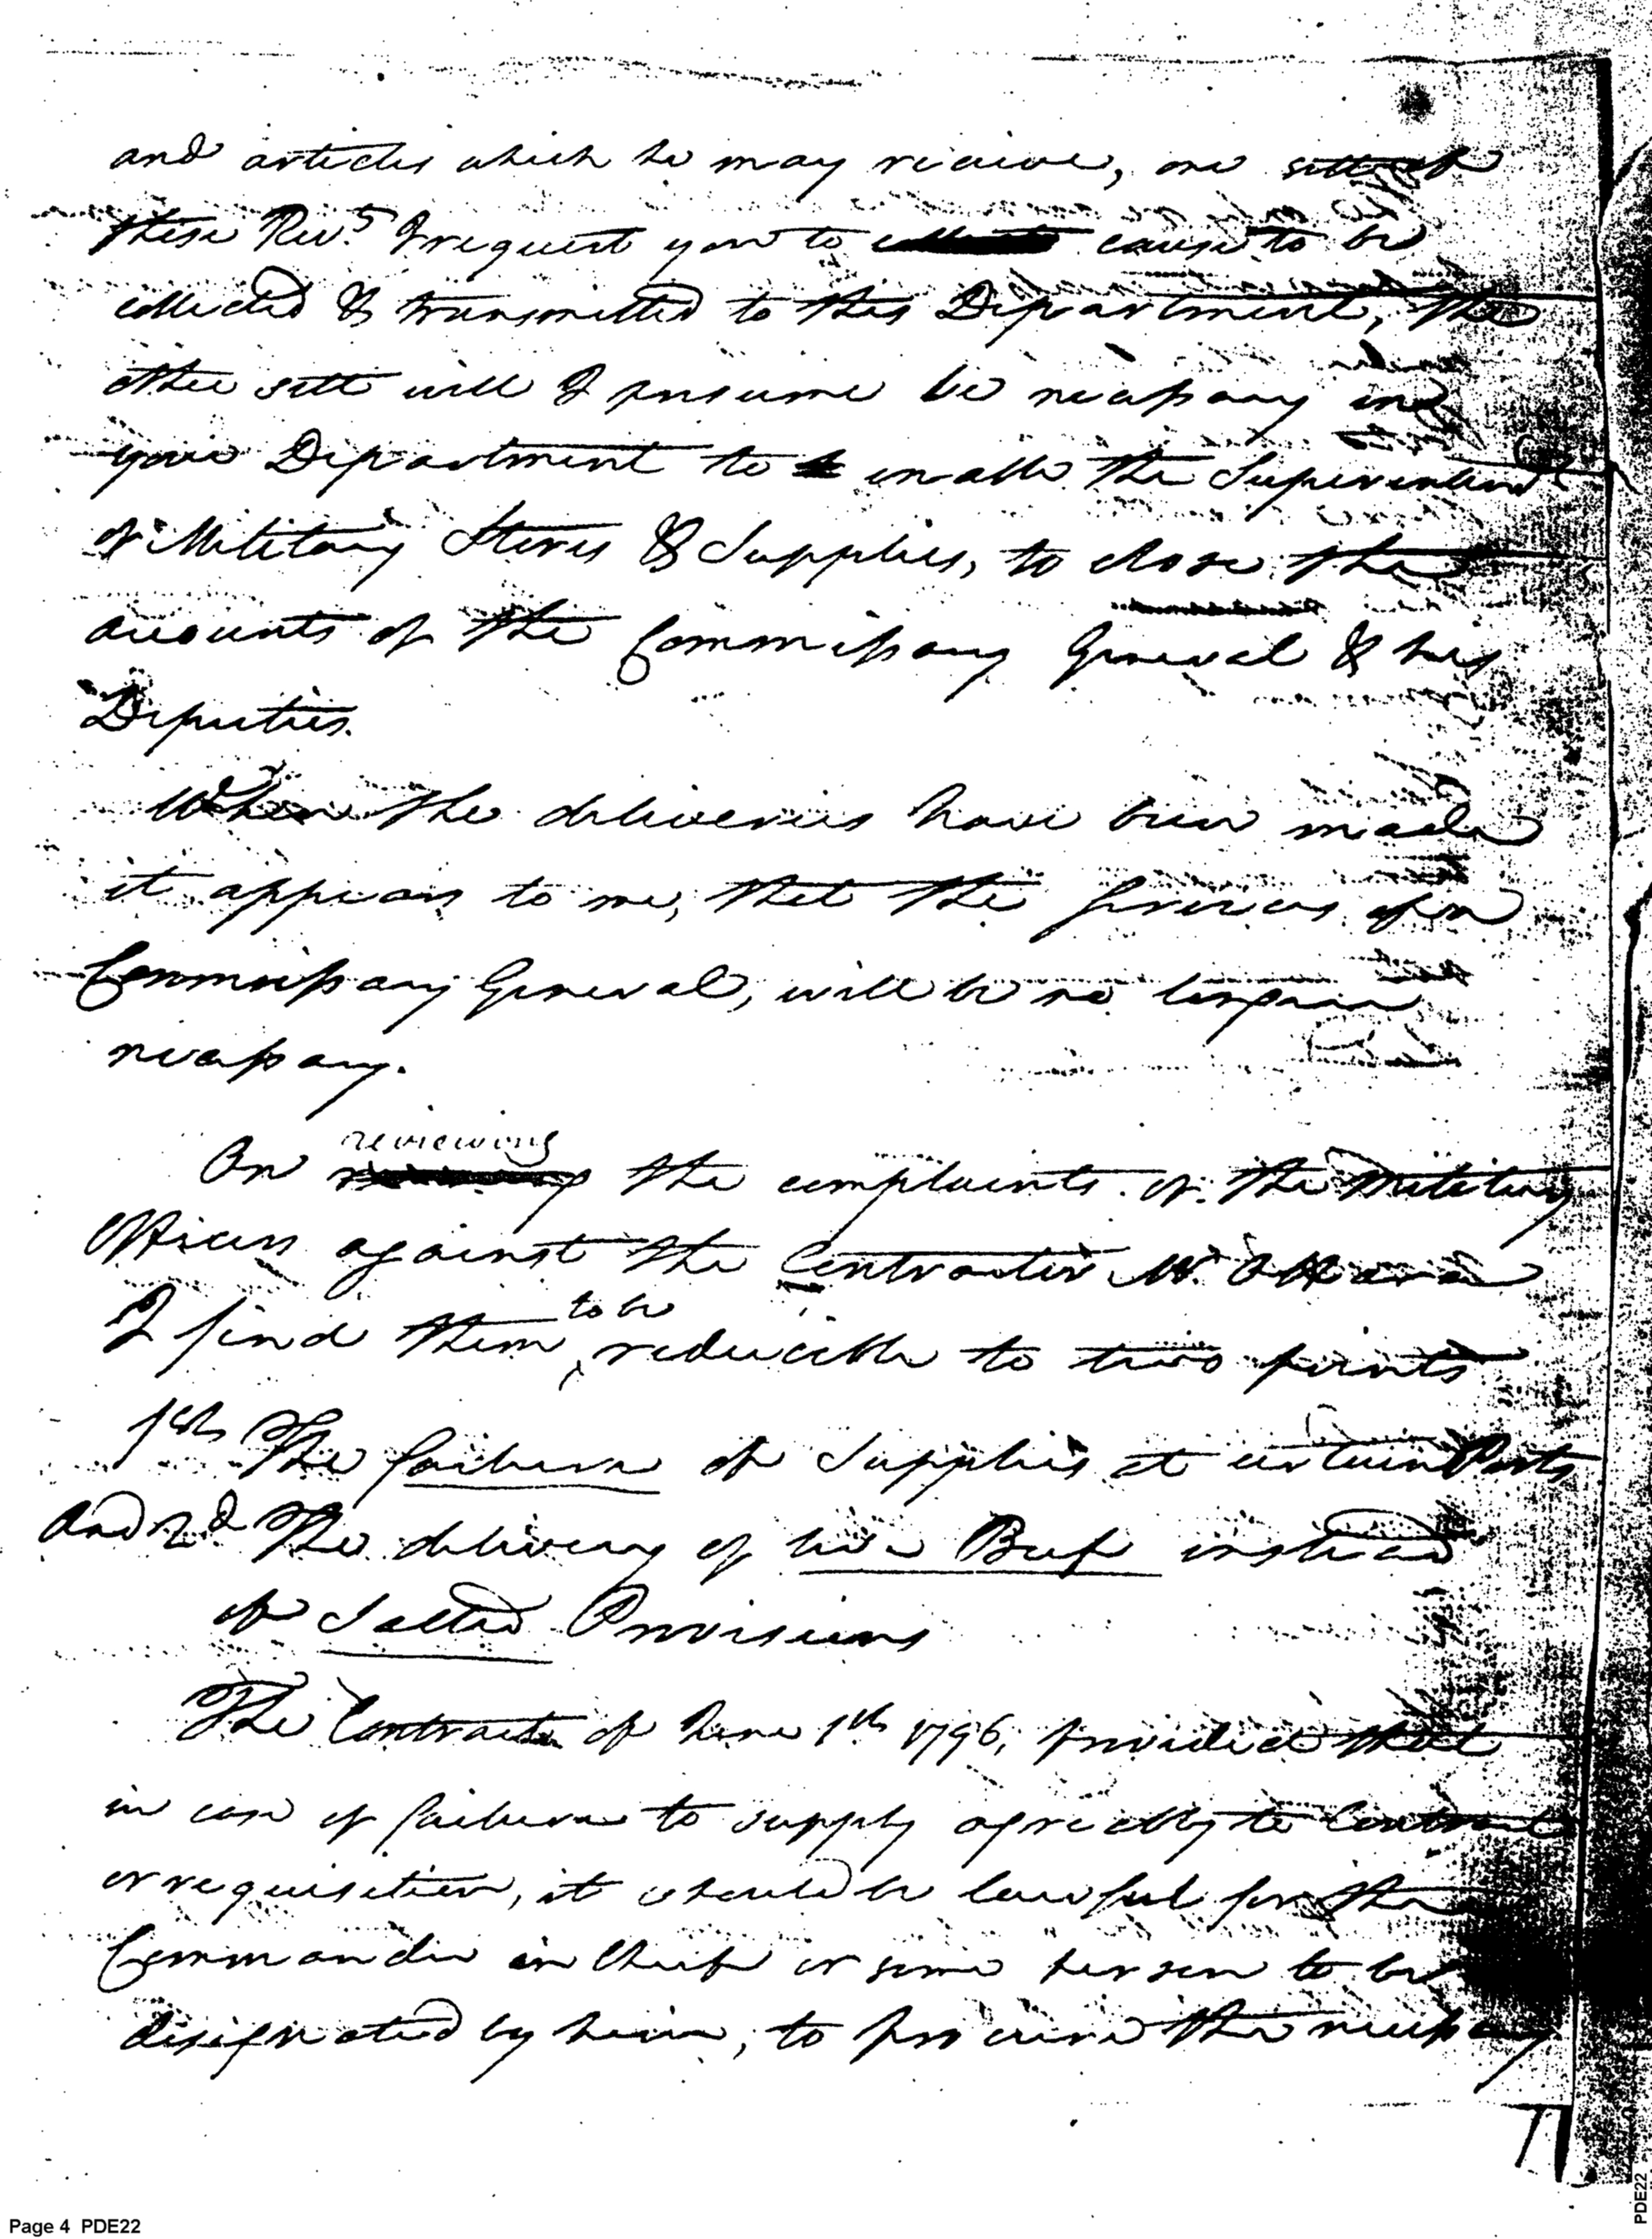 and articles which he may receive, one sett of
these Rec.ts I request you to cause to be
collected & transmitted to this Department, the
other sett will I presume be necessary in
your Department to enable the Superintend
of Military Stores & Supplies, to close the
accounts of the Commissary General & his
Deputies.
When the deliveries have been made
it appears to me, that the services of a
Commissary General, will be no longer
necessary.
reviewing
On the complaints of the Military
Officers against the Contractor Mr. OHara
to be
I find them reducible to two points
1st The failure of Supplies at certain Posts
and 2d The delivery of live Beef instead
of Salted Provisions
The Contract of June 1st 1796, provided that
in case of failure to supply agreeably to Contract
or requisition, it should be lawful for the
Commander in Cheif or some person to be
designated by him, to procure the necessary
Page 4 PDE22
PDE22